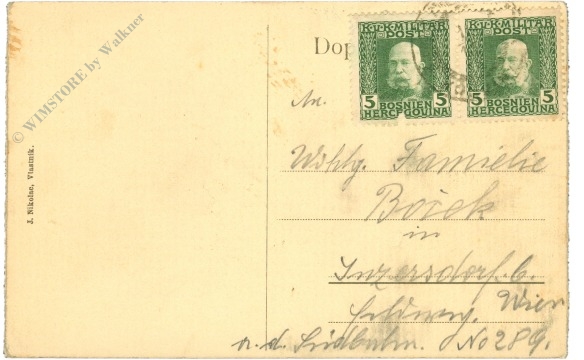 © WIMSTORE by Walkner
J. Nikolac, Vlastnik.
K.u.K. MILITÄR POST
5 5
BOSNIEN
HERCEGOVINA
K.u.K. MILITÄR POST
5 5
BOSNIEN
HERCEGOVINA
Dop
An.
Wohlg. Familie
in
Inzersdorf b.
Wien
a. d. Südbahn. No 289.